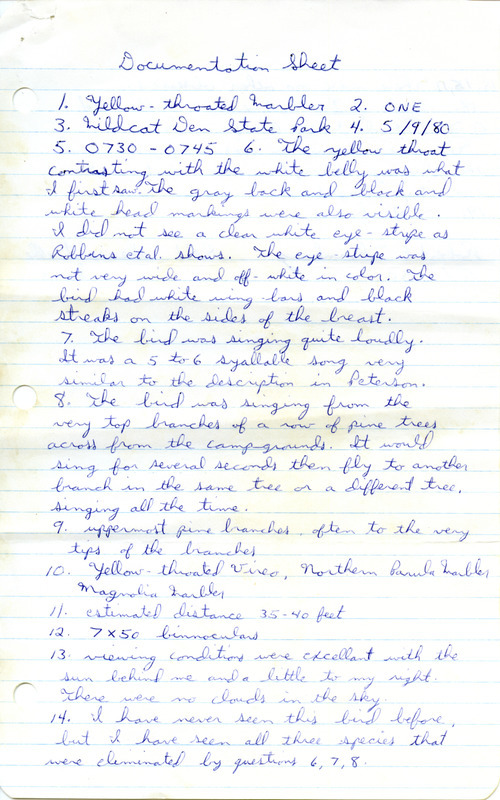 Documentation Sheet
1. Yellow-throated Warbler 2. ONE
3. Wildcat Den State Park 4. 5/9/80
5. 0730 - 0745 6. The yellow throat
contrasting with the white belly was what
I first saw. The gray back and black and
white head markings were also visible.
I did not see a clear white eye-stripe as
Robbins etal. shows. The eye-stripe was
not very wide and off-white in color. The
bird had white wing bars and black
streaks on the sides of the breast.
7. The bird was singing quite loudly.
It was a 5 to 6 syallable song very
similar to the description in Peterson.
8. The bird was singing from the
very top branches of a row of pine trees
across from the campgrounds. It would
sing for several seconds then fly to another
branch in the same tree or a different tree,
singing all the time.
9. uppermost pine branches, often to the very
tips of the branches
10. Yellow-throated Vireo, Northern Parula Warbler
Magnolia Warbler
11. estimated distance 35-40 feet
12. 7x50 binnoculars
13. viewing conditions were excellant with the
sun behind me and a little to my right.
There were no clouds in the sky.
14. I have never seen this bird before,
but I have seen all three species that
were eliminated by questions 6, 7, 8.